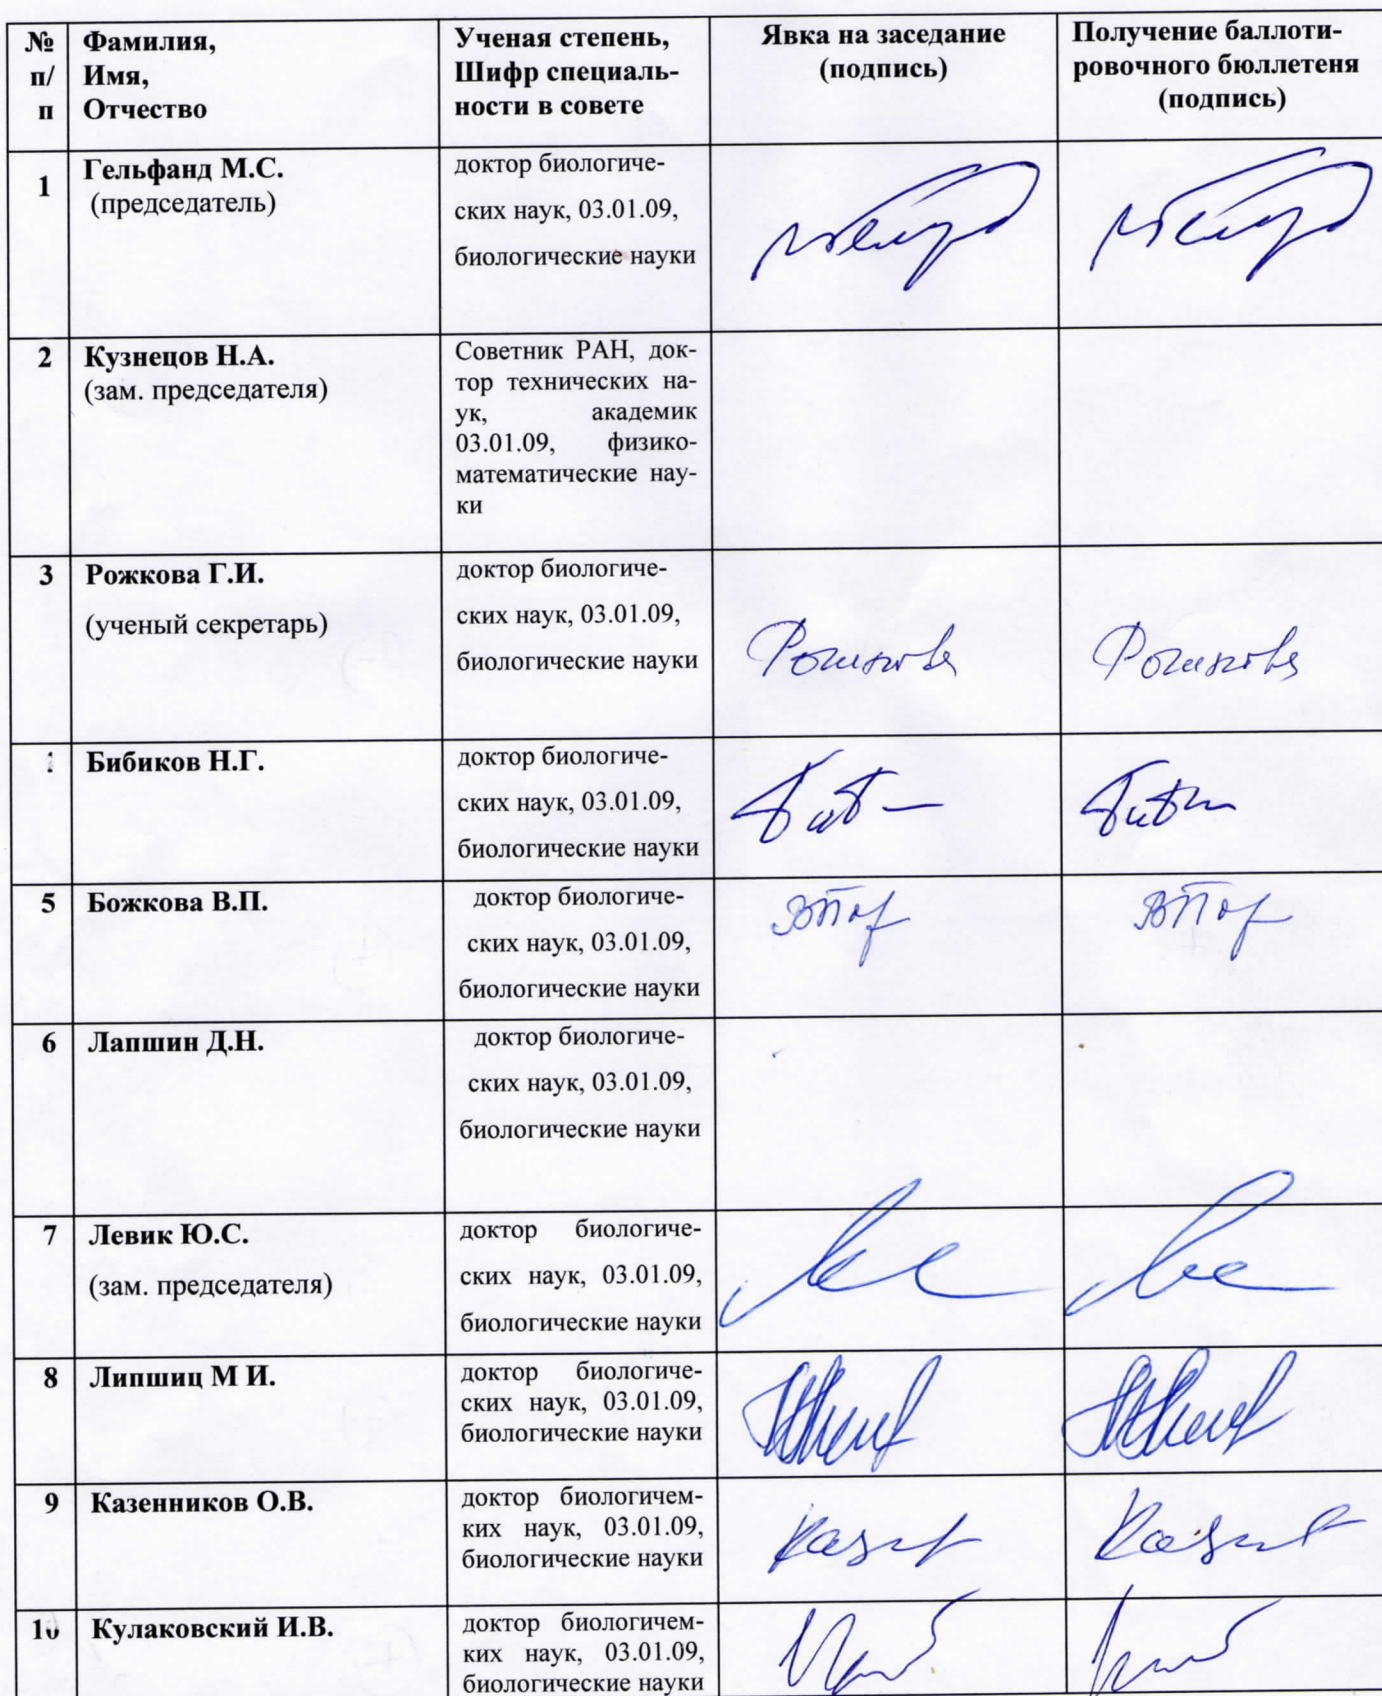 № п/п
Фамилия,
Имя,
Отчество
Ученая степень,
Шифр специаль-
ности в совете
Явка на заседание
(подпись)
Получение баллоти-
ровочного бюллетеня
(подпись)
1
Гельфанд М.С.
(председатель)
доктор биологиче-
ских наук, 03.01.09,
биологические науки
2
Кузнецов Н.А.
(зам. председателя)
Советник РАН, док-
тор технических на-
ук, академик
03.01.09, физико-
математические нау-
ки
3
Рожкова Г.И.
(ученый секретарь)
доктор биологиче-
ских наук, 03.01.09,
биологические науки
Бибиков Н.Г.
доктор биологиче-
ских наук, 03.01.09,
биологические науки
5
Божкова В.П.
доктор биологиче-
ских наук, 03.01.09,
биологические науки
6
Лапшин Д.Н.
доктор биологиче-
ских наук, 03.01.09,
биологические науки
7
Левик Ю.С.
(зам. председателя)
доктор биологиче-
ских наук, 03.01.09,
биологические науки
8
Липшиц М И.
доктор биологиче-
ских наук, 03.01.09,
биологические науки
9
Казенников О.В.
доктор биологичем-
ких наук, 03.01.09,
биологические науки
10
Кулаковский И.В.
доктор биологичем-
ких наук, 03.01.09,
биологические науки